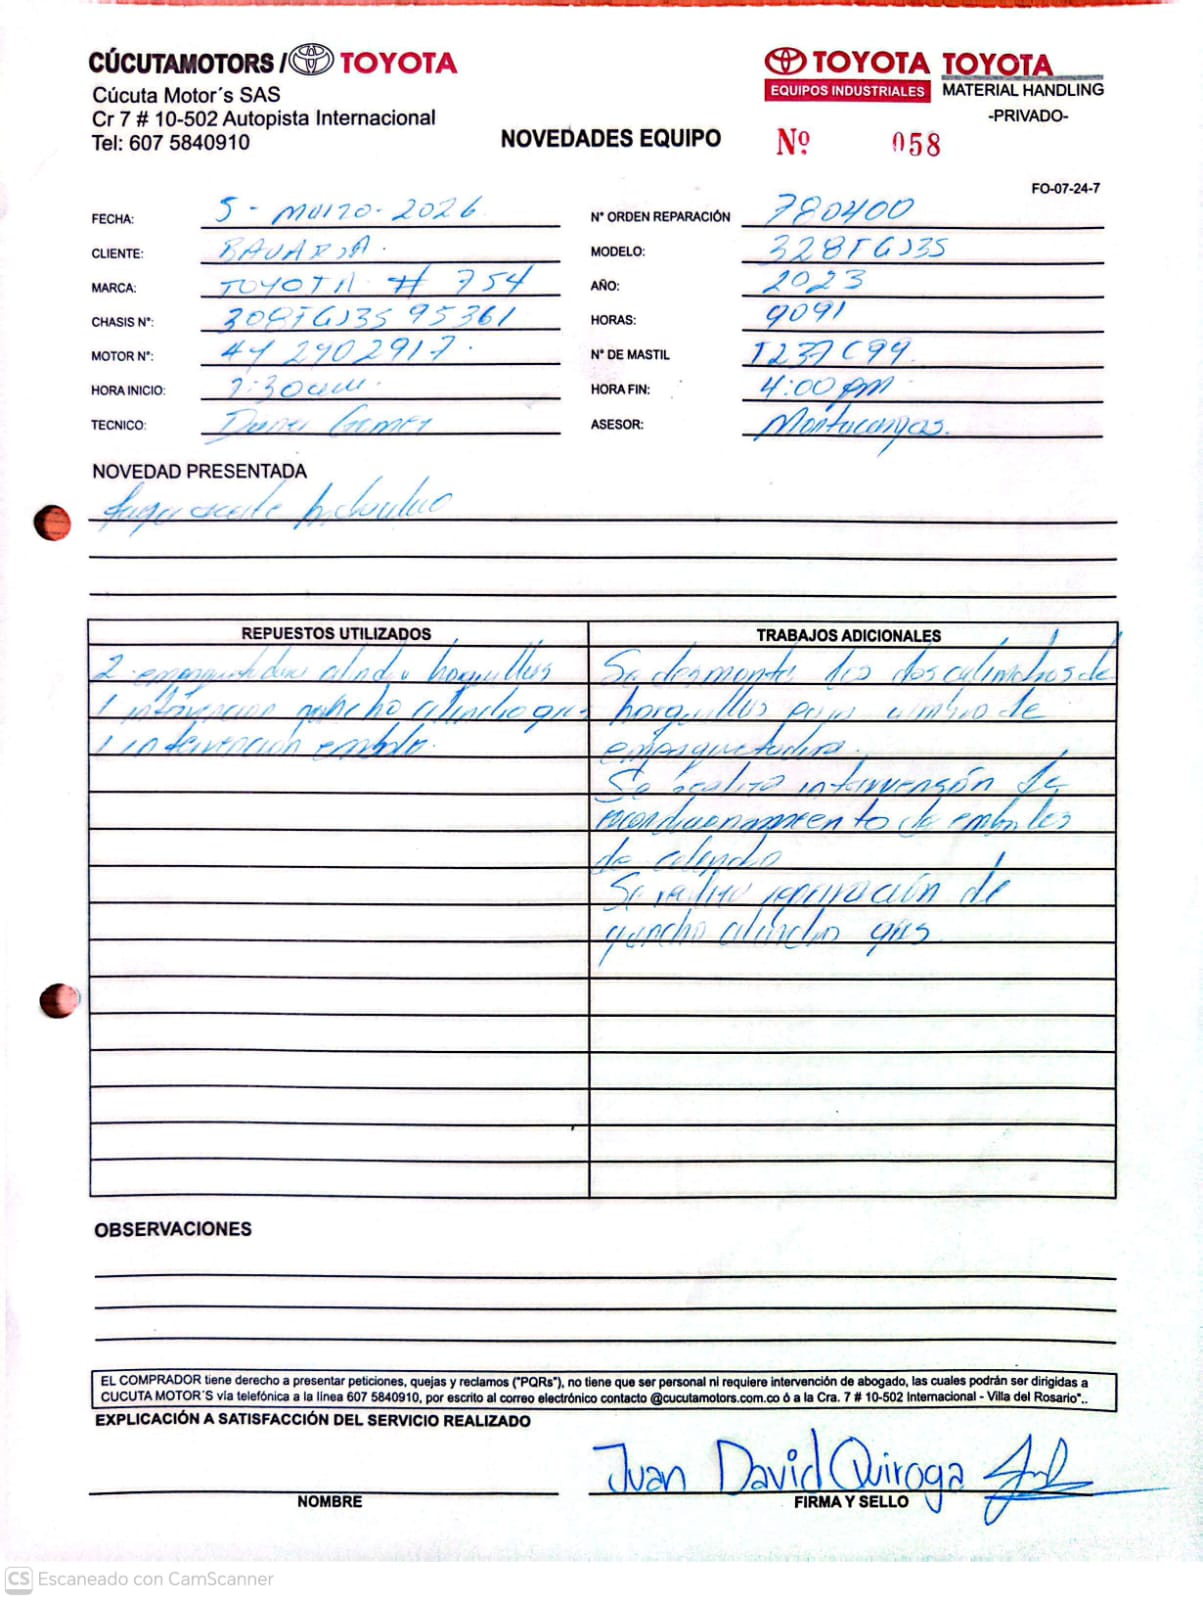 CÚCUTAMOTORS / TOYOTA
Cúcuta Motor´s SAS
Cr 7 # 10-502 Autopista Internacional
Tel: 607 5840910
TOYOTA
EQUIPOS INDUSTRIALES
TOYOTA
MATERIAL HANDLING
-PRIVADO-
NOVEDADES EQUIPO
Nº 058
FO-07-24-7
FECHA: 5 - Marzo - 2026
Nº ORDEN REPARACIÓN 780400
CLIENTE: BAVARIA.
MODELO: 328FGJ35
MARCA: TOYOTA # 754
AÑO: 2023
CHASIS Nº: 308FGJ35 95361
HORAS: 9091
MOTOR Nº: 4Y 2902917.
Nº DE MASTIL T237C99.
HORA INICIO: 7:30am.
HORA FIN: 4:00 pm
TECNICO: Gomez
ASESOR: Montacargas.
NOVEDAD PRESENTADA
fuga aceite hidraulico
REPUESTOS UTILIZADOS
2 empaquetadura cilindro horquillas
1 intervencion gancho cilindro gas
1 intervención embolo.
TRABAJOS ADICIONALES
Se desmonta los dos cilindros de
horquillas para cambio de
empaquetadura.
Se realizo intervensión de
recondicionamiento de embolos
de cilindro
Se realizo reparación de
gancho cilindro gas.
OBSERVACIONES
EL COMPRADOR tiene derecho a presentar peticiones, quejas y reclamos ("PQRs"), no tiene que ser personal ni requiere intervención de abogado, las cuales podrán ser dirigidas a
CUCUTA MOTOR´S vía telefónica a la línea 607 5840910, por escrito al correo electrónico contacto @cucutamotors.com.co ó a la Cra. 7 # 10-502 Internacional - Villa del Rosario"..
EXPLICACIÓN A SATISFACCIÓN DEL SERVICIO REALIZADO
Juan David Quiroga
NOMBRE
FIRMA Y SELLO
CS Escaneado con CamScanner